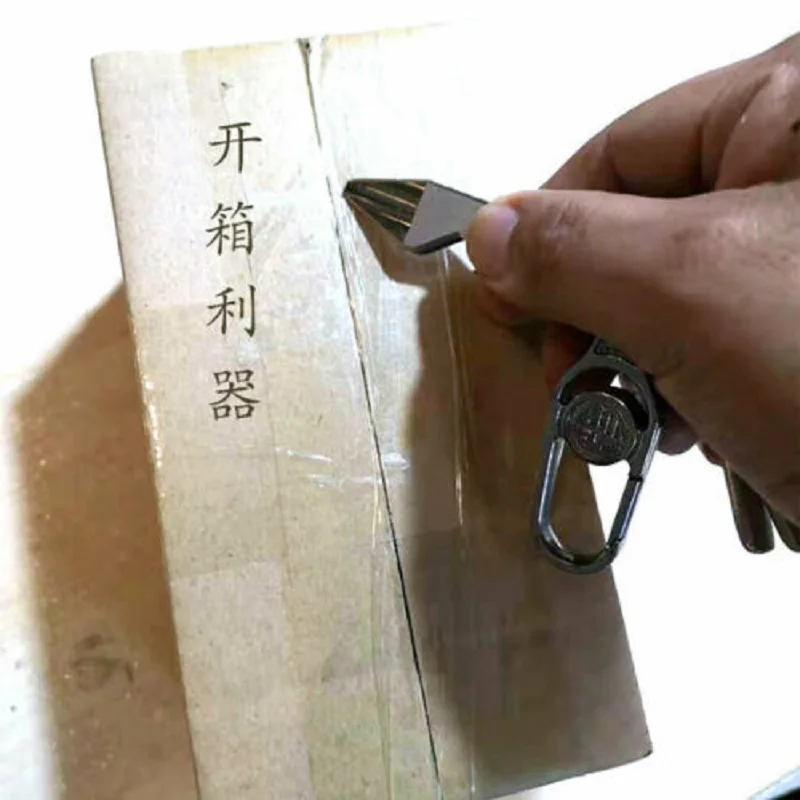 开箱利器